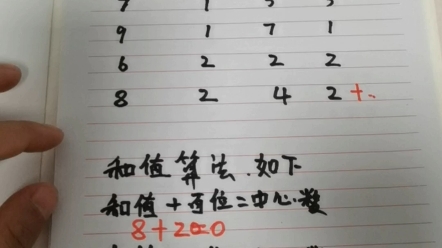 9 1 7 1
6 2 2 2
8 2 4 2 +.
和值算法.如下
和值+百位=中心数
8+2=0